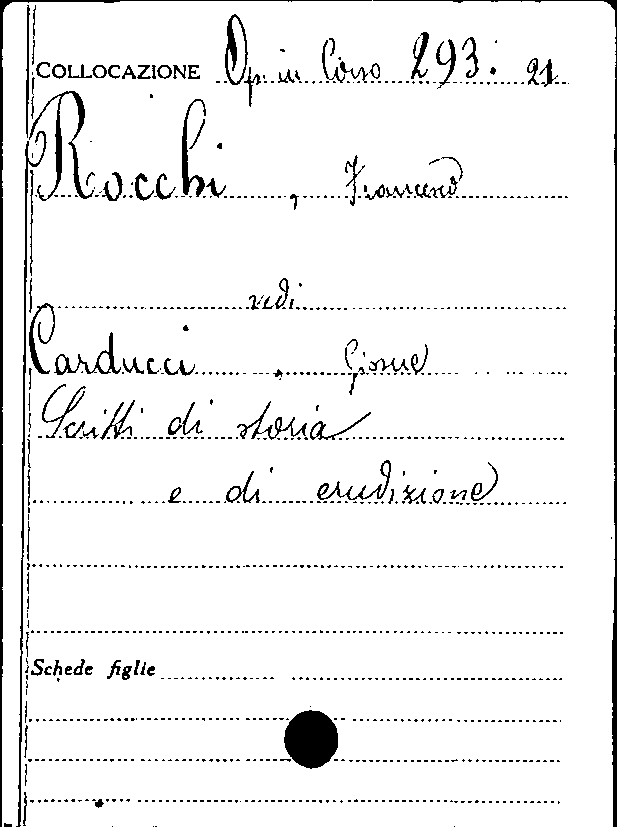 COLLOCAZIONE Op. in Corso 293. 21
Rocchi, Francesco
vedi
Carducci, Giosue
Scritti di storia
e di erudizione
Schede figlie